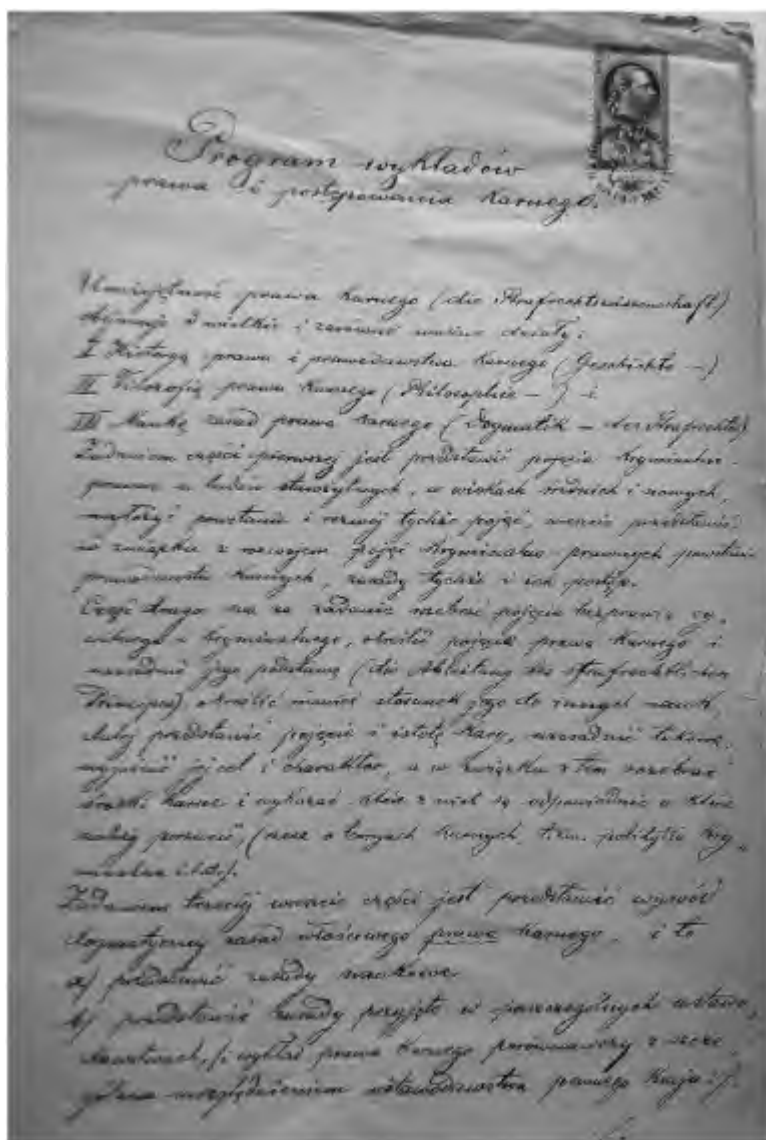 Program wykładów
prawa i postępowania karnego.
Umiejętność prawa karnego (die Strafrechtswissenschaft)
obejmuje 3 wielkie i zarówno ważne działy:
I Historyę prawa i prawodawstwa karnego (Geschichte –)
II Filozofię prawa karnego (Philosophie – ) i
III Naukę zasad prawa karnego (Dogmatik – des Strafrechts)
Zadaniem części pierwszej jest przedstawić pojęcia kryminalno-
prawne u ludów starożytnych, w wiekach średnich i nowych,
wyłożyć powstanie i rozwój tychże pojęć, wreszcie przedstawić
w związku z rozwojem pojęć kryminalno-prawnych powstanie
prawodawstw karnych, zasady tychże i ich postęp.
Część druga ma za zadanie rozebrać pojęcie bezprawia cy-
wilnego a kryminalnego, określić pojęcie prawa karnego i
uzasadnić jego podstawę (die Ableitung des strafrechtlichen
Princips), określić również stosunek jego do innych nauk,
dalej przedstawić pojęcie i istotę kary, uzasadnić takową,
wyjaśnić jej cel i charakter, a w związku z tem rozebrać
środki karne i wykazać, które z nich są odpowiednie a które
należy porzucić, (rzecz o teoryach karnych, tzw. polityka kry-
minalna i t.d.).
Zadaniem trzeciej wreszcie części jest przedstawić wywód
dogmatyczny zasad właściwego prawa karnego, i to
a) przedstawić zasady naukowe.
b) przedstawić zasady przyjęte w poszczególnych ustawo-
dawstwach, (i wykład prawa karnego porównawczy z szcze-
gólnem uwzględnieniem ustawodawstwa pewnego kraju).